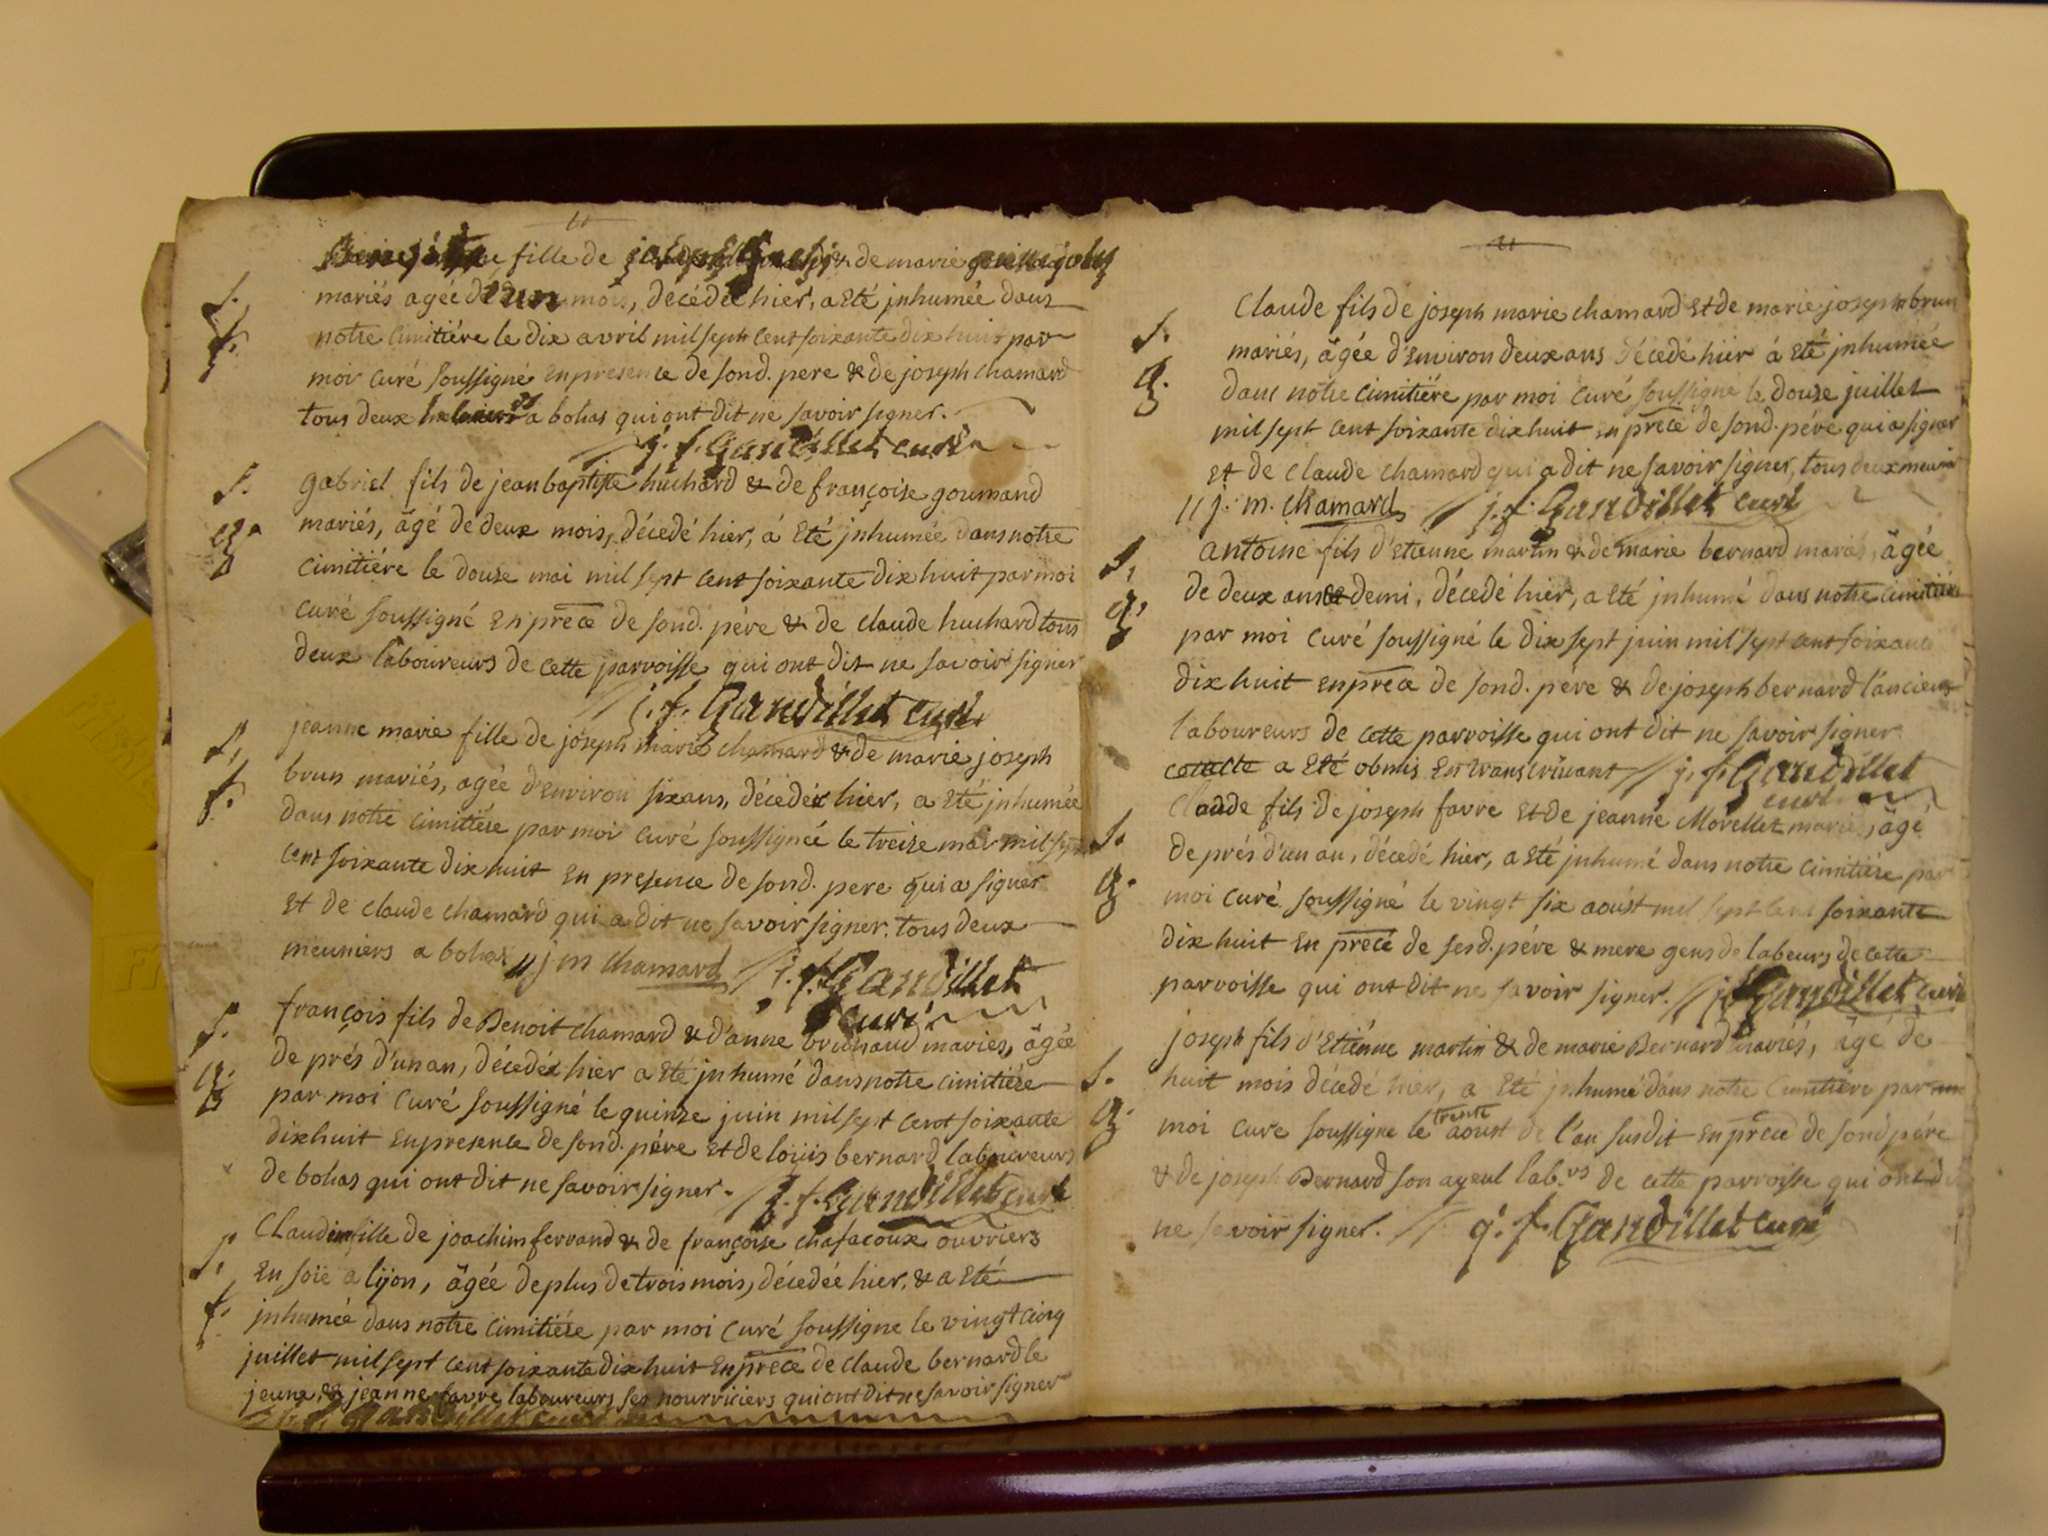 fille de & de marie
S. mariés agée d'un mois, décédée hier, a Eté jnhumée dans
f. notre cimitiére le dix avril mil sept cent soixante dix huit par
moi curé soussigné en presence de sond. pere & de joseph chamard
tous deux a bohas qui ont dit ne savoir signer.
j. f. Gandillet curé
S. gabriel fils de jean baptiste huchard & de françoise goumand
g. mariés, âgé de deux mois, décedé hier, á Eté jnhumée dans notre
cimitiére le douse mai mil sept cent soixante dix huit par moi
curé soussigné en prece de sond. pére & de claude huchard tous
deux laboureurs de cette parroisse qui ont dit ne savoir signer
j. f. Gandillet curé
S. jeanne marie fille de joseph marie chamard & de marie joseph
f. brun mariés, agée d'environ six ans, décedée hier, a Eté jnhumée
dans notre cimitiére par moi curé soussignéé le treize mai mil sept
cent soixante dix huit en presence de sond. pere qui a signer
Et de claude chamard qui a dit ne savoir signer. tous deux
meuniers a bohas // j m chamard // j. f. Gandillet
curé
S. françois fils de Benoit chamard & d'anne mariés, âgée
g. de prés d'un an, décedé hier a Eté jnhumé dans notre cimitiére
par moi curé soussigné le quinse juin mil sept cent soixante
dix huit en presence de sond. pére Et de loüis bernard laboureurs
de bohas qui ont dit ne savoir signer. j. f. Gandillet curé
S. Claudine fille de joachim ferrand & de françoise chafacoux ouvriers
En soïe a lÿon, âgée de plus de trois mois, décedée hier, & a Eté
f. jnhumée dans notre cimitiére par moi curé soussigne le vingt cinq
juillet mil sept cent soixante dix huit en prece de claude bernard le
jeune, & jeanne favre laboureurs ses nourriciers qui ont dit ne savoir signer
j. f. Gandillet curé
Claude fils de joseph marie chamard Et de marie joseph brun
S. mariés, âgée d'environ deux ans décedé hier á Eté jnhumée
g. dans notre cimitiére par moi curé soussigne le douse juillet
mil sept cent soixante dix huit en prece de sond. pére qui a signer
Et de claude chamard qui a dit ne savoir signer, tous deux meuniers
// j. m. chamard // j. f. Gandillet curé
S. antoine fils d'etienne martin & de marie bernard mariés, âgée
g. de deux ans & demi, décédé hier, a Eté jnhumé dans notre cimitiére
par moi curé soussigné le dix sept juin mil sept cent soixante
dix huit en prece de sond. pére & de joseph bernard l'ancien
laboureurs de cette parroisse qui ont dit ne savoir signer
cet acte a Eté obmis En transcrivant // j. f. Gandillet
curé
Claude fils de joseph favre Et de jeanne Morellet mariés, âgé
S. de prés d'un an, décedé hier, a Eté jnhumé dans notre cimitiére par
g. moi curé soussigné le vingt six aoúst mil sept cent soixante
dix huit En prece de sesd. pére & mere gens de labeurs de cette
parroisse qui ont dit ne savoir signer. // j. f. Gandillet curé
joseph fils d'Etiénne martin & de marie Bernard mariés, âgé de
S. huit mois décede hier, a Eté jnhumé dans notre cimitiére par
g. moi cure soussigne le trente aoust de l'an susdit en prece de sond pére
& de joseph Bernard son ayeul lab.rs de cette parroisse qui ont dit
ne savoir signer. // j. f. Gandillet curé